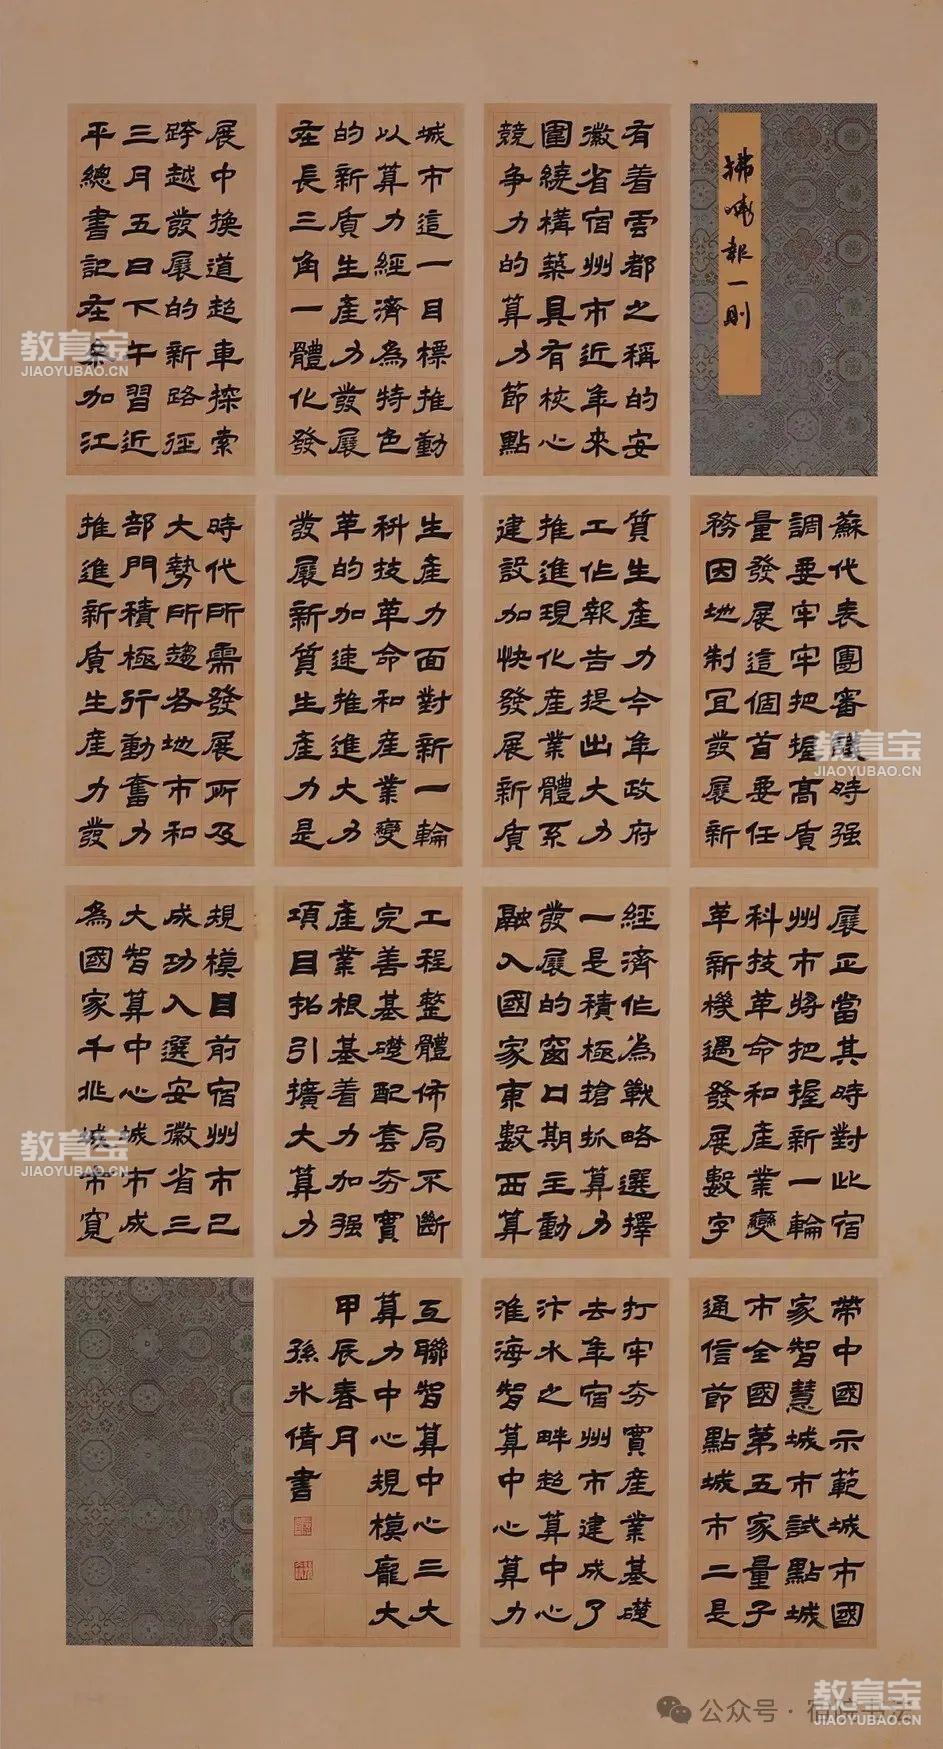 拂曉報一則
有着雲都之稱的安
徽省宿州市近年來
圍繞構築具有核心
競争力的算力節點
城市這一目標推動
以算力經濟為特色
的新质生產力發展
在長三角一體化發
展中换道超車探索
跨越發展的新路径
三月五日下午習近
平總書記在参加江
蘇代表團審議時强
調要牢牢把握髙质
量發展這個首要任
務因地制宜發展新
质生產力今年政府
工作報告提出大力
推進現化產業體系
建設加快發展新质
生產力面對新一輪
科技革命和產業變
革的加速推進大力
發展新質生產力是
時代所需發展所及
大勢所趨各地市和
部門積極行動奮力
推進新质生產力發
展正當其時對此宿
州市将把握新一輪
科技革命和產業變
革新機遇發展數字
經濟作為戰略選擇
一是積極搶抓算力
發展的窗口期主動
融入國家東數西算
工程整體佈局不斷
完善基礎配套夯實
產業根基着力加强
項目拓引擴大算力
規模目前宿州市已
成功入選安徽省三
大智算中心城市成
為國家千兆城市寬
帶中國示範城市國
家智慧城市試點城
市全國第五家量子
通信節點城市二是
打牢夯實產業基礎
去年宿州市建成了
汴水之畔超算中心
淮海智算中心算力
互聯智算中心三大
算力中心規模龐大
甲辰春月
孫冰倩書
教育宝
JIAOYUBAO.CN
教育宝
JIAOYUBAO.CN
教育宝
JIAOYUBAO.CN
教育宝
JIAOYUBAO.CN
公众号·宿院书法